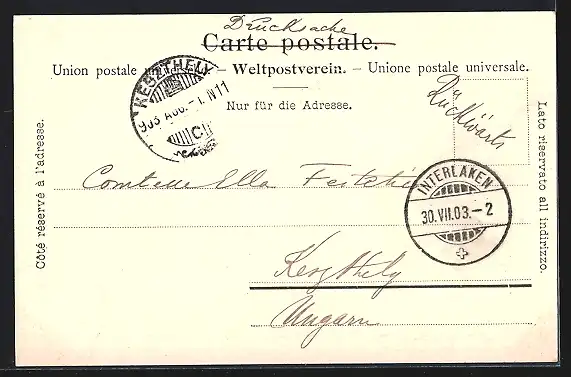 Drucksache
Carte postale.
Union postale universelle. – Weltpostverein. – Unione postale universale.
Nur für die Adresse.
Côté réservé à l'adresse.
Lato riservato all indirizzo.
KESZTHELY
903 AUG. -1. N 11
C
Rückwärts
Comtesse Ella Festetics
INTERLAKEN
30.VII.03.-2
Keszthely
Ungarn